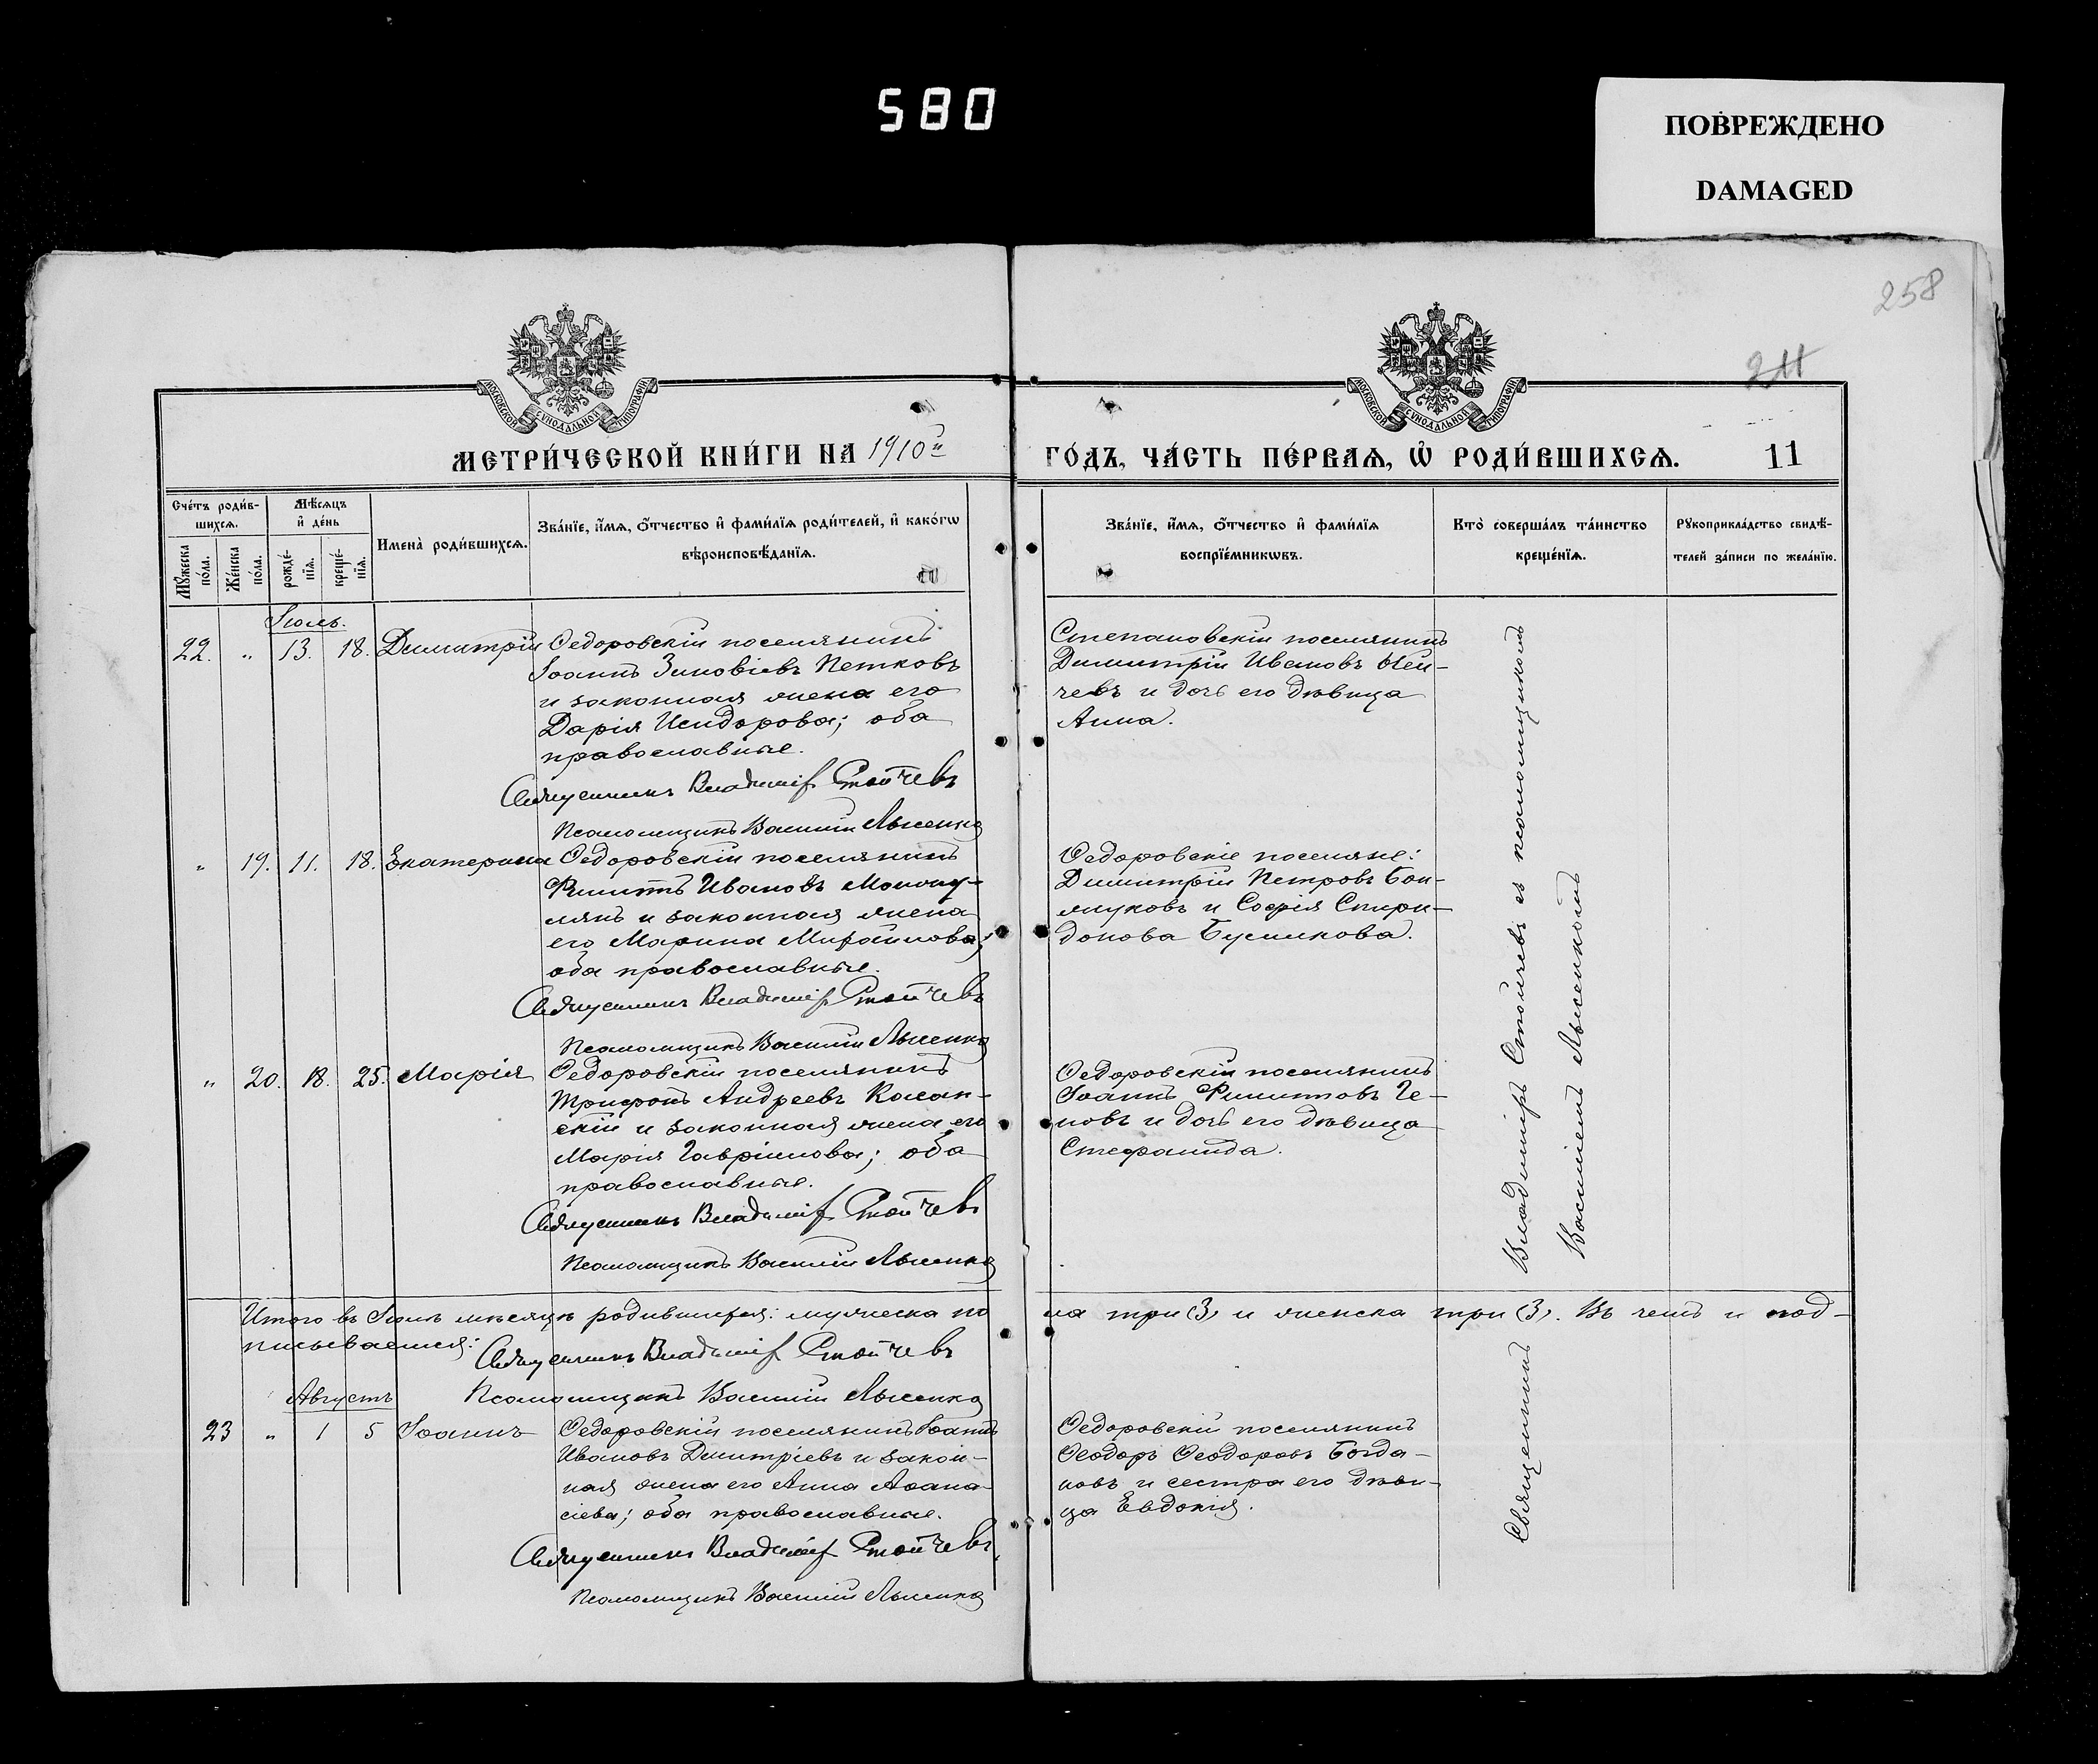 580
ПОВРЕЖДЕНО
DAMAGED
258
211
МЕТРИ́ЧЕСКОЙ КНИ́ГИ НА 1910й
ГО́ДЪ, ЧА́СТЬ ПЕ́РВАѦ, Ѡ҆ РОДИ́ВШИХСѦ.
11
Сче́тъ роди́в-
шихсѧ.
Мꙋ́жеска по́ла.
Же́нска по́ла.
Мѣ́сѧцъ
и҆ де́нь
рожде́-
нїѧ.
креще́-
нїѧ.
Имена̀ роди́вшихсѧ.
Зва́нїе, и҆́мѧ, ѻ҆́тчество и҆ фами́лїѧ роди́телей, и҆ како́гѡ
вѣроисповѣ́данїѧ.
Зва́нїе, и҆́мѧ, ѻ҆́тчество и҆ фами́лїѧ
воспрїе́мникѡвъ.
Кто̀ соверша́лъ та́инство
креще́нїѧ.
Рꙋкоприкла́дство свидѣ́-
телей за́писи по жела́нїю.
Іюль.
22. " 13. 18. Димитрій
Ѳедоровскій поселянинъ
Іоаннъ Зиновіевъ Петковъ
и законная жена его
Дарія Исидорова; оба
православные.
Священникъ Владимір Стойчевъ
Псаломщикъ Василій Лысенко
Степановскій поселянинъ
Димитрій Ивановъ Ней-
чевъ и дочь его дѣвица
Анна.
" 19. 11. 18. Екатерина
Ѳедоровскій поселянинъ
Филиппъ Ивановъ
и законная жена
его Марина Михайлова;
оба православные.
Священникъ Владимір Стойчевъ
Псаломщикъ Василій Лысенко
Ѳедоровскіе поселяне:
Димитрій Петровъ Бой-
жуковъ и Софія Спири-
донова
" 20. 18. 25. Марія
Ѳедоровскій поселянинъ
Трифонъ Андреевъ Казан-
скій и законная жена его
Марія Гавріилова; оба
православные.
Священникъ Владимір Стойчевъ
Псаломщикъ Василій Лысенко
Ѳедоровскій поселянинъ
Іоаннъ Филипповъ Ге-
новъ и дочь его дѣвица
Стефанида.
Итого въ Іюлѣ мѣсяцѣ родившихся: мужеска по
ла три (3) и женска три (3). Въ чемъ и под-
писываемся:
Священникъ Владимір Стойчевъ
Псаломщикъ Василій Лысенко
Августъ
23 " 1 5 Іоаннъ
Ѳедоровскій поселянинъ Іоаннъ
Ивановъ Димитріевъ и закон-
ная жена его Анна Аѳана-
сіева; оба православные.
Священникъ Владимір Стойчевъ
Псаломщикъ Василій Лысенко
Ѳедоровскій поселянинъ
Ѳеодоръ Ѳеодоровъ Богда-
новъ и сестра его дѣви-
ца Евдокія.
Священникъ Владиміръ Стойчевъ съ псаломщикомъ
Василіемъ Лысенкомъ